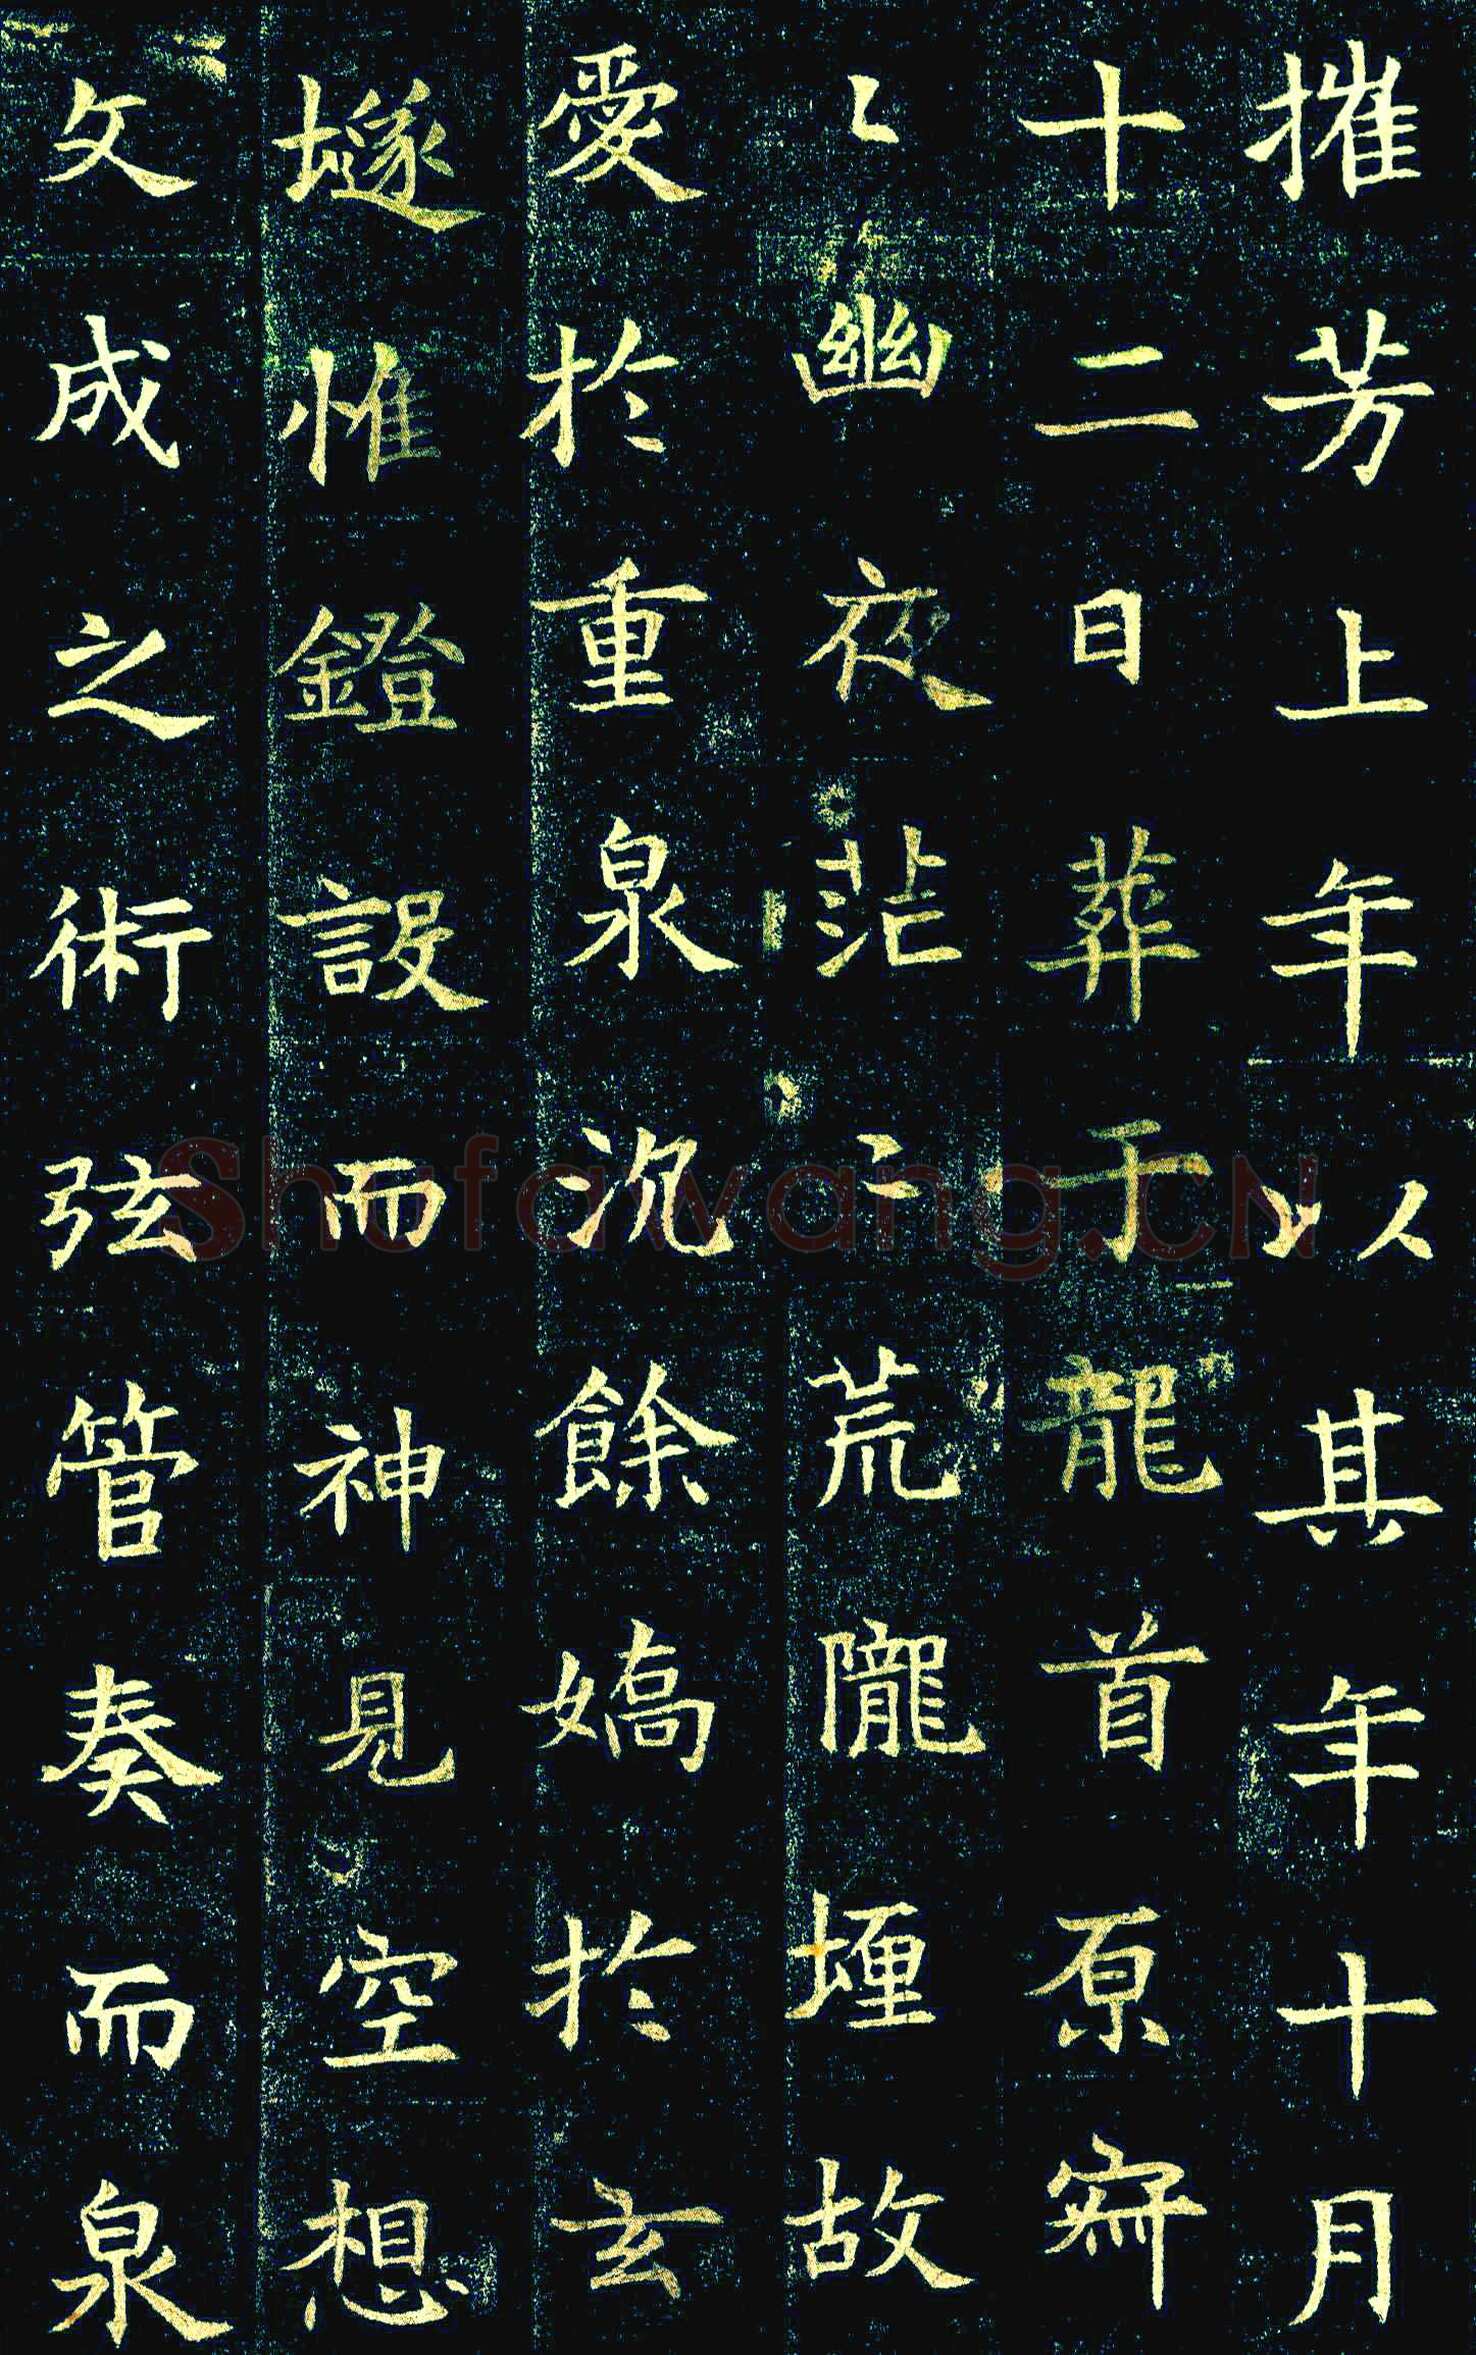 摧芳上年以其年十月
十二日葬于龍首原寂
〻幽夜茫〻荒隴堙故
愛於重泉沉餘嬌於玄
壝惟鐙設而神見空想
文成之術弦管奏而泉
Shufawang.CN